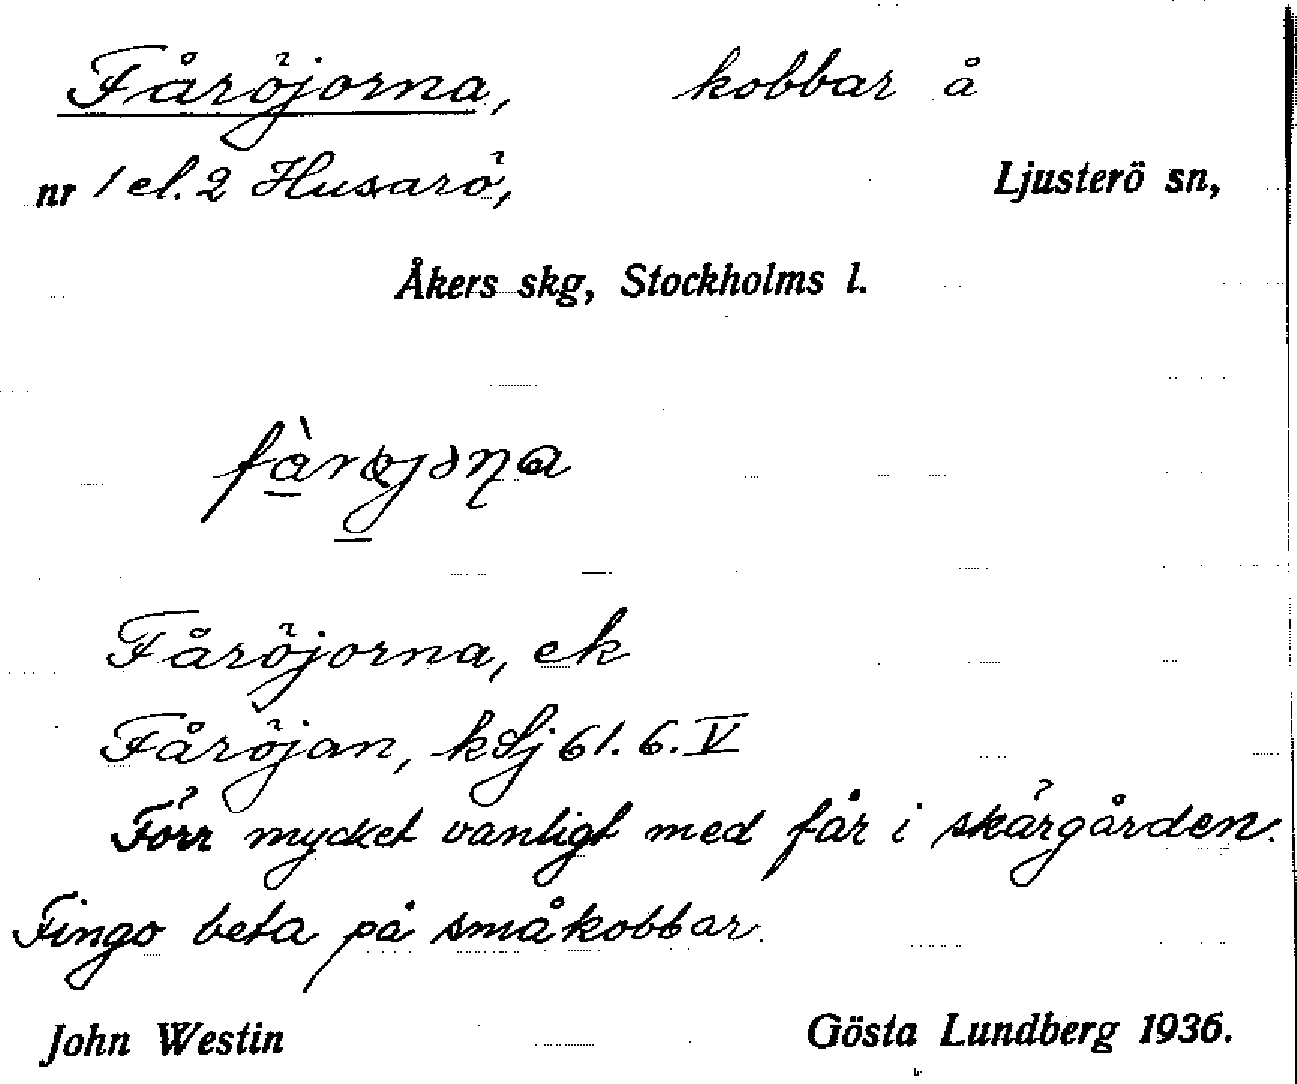 Fåröjorna, kobbar å
nr 1 el. 2 Husarö, Ljusterö sn,
Åkers skg, Stockholms l.
Fåröjorna, ek
Fåröjan, kSj 61. 6. V
Förr mycket vanligt med får i skärgården.
Fingo beta på småkobbar.
John Westin Gösta Lundberg 1936.